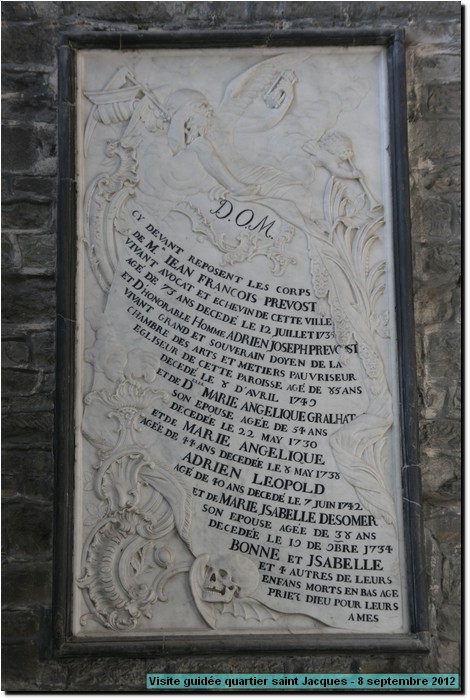 D.O.M.
CY DEVANT REPOSENT LES CORPS
DE Mre IEAN FRANÇOIS PREVOST
VIVANT AVOCAT ET ECHEVIN DE CETTE VILLE
AGE DE 73 ANS DECEDE LE 12 JUILLET
ET D'HONORABLE HOMME ADRIEN JOSEPH PREVOST
VIVANT GRAND ET SOUVERAIN DOYEN DE LA
CHAMBRE DES ARTS ET METIERS PAUVRISEUR
EGLISEUR DE CETTE PAROISSE AGÉ DE 85 ANS
DECEDE LE 8 D'AVRIL 1749
ET DE Delle MARIE ANGELIQUE GRALHAT
SON EPOUSE AGEE DE 54 ANS
DECEDÉE LE 22 MAY 1730
ET DE MARIE ANGELIQUE
AGÉE DE 44 ANS DECEDÉE LE 8 MAY 1738
ADRIEN LEOPOLD
AGE DE 40 ANS DECEDÉ LE 7 JUIN 1742
ET DE MARIE JSABELLE DESOMER
SON EPOUSE AGEE DE 38 ANS
DECEDEE LE 19 DE 9BRE 1734
BONNE ET JSABELLE
ET 4 AUTRES DE LEURS
ENFANS MORTS EN BAS AGE
PRIEZ DIEU POUR LEURS
AMES
Visite guidée quartier saint Jacques - 8 septembre 2012